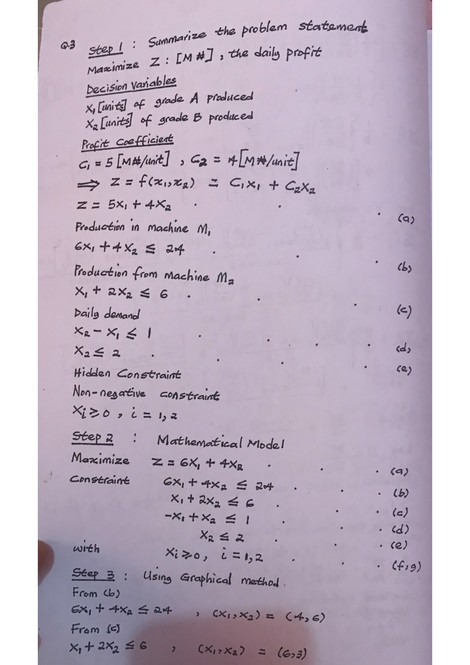 Q.3 Step 1 : Summarize the problem statement
Maximize Z : [M₦], the daily profit
Decision Variables
X₁ [units] of grade A produced
X₂ [units] of grade B produced
Profit Coefficient
C₁ = 5 [M₦/unit] , C₂ = 4 [M₦/unit]
⇒ Z = f(x₁,x₂) = C₁X₁ + C₂X₂
Z = 5X₁ + 4X₂ . . . (a)
Production in machine M₁
6X₁ + 4X₂ ≤ 24 . . . (b)
Production from machine M₂
X₁ + 2X₂ ≤ 6 . . . (c)
Daily demand
X₂ - X₁ ≤ 1 . . . (d)
X₂ ≤ 2 . . . (e)
Hidden Constraint
Non-negative constraint
Xi ≥ 0 , i = 1,2
Step 2 : Mathematical Model
Maximize Z = 6X₁ + 4X₂ . . . (a)
Constraint 6X₁ + 4X₂ ≤ 24 . . . (b)
X₁ + 2X₂ ≤ 6 . . . (c)
-X₁ + X₂ ≤ 1 . . . (d)
X₂ ≤ 2 . . . (e)
with Xi ≥ 0 , i = 1,2 . . . (f,g)
Step 3 : Using Graphical method.
From (b)
6X₁ + 4X₂ ≤ 24 , (X₁,X₂) = (4,6)
From (c)
X₁ + 2X₂ ≤ 6 , (X₁,X₂) = (6,3)